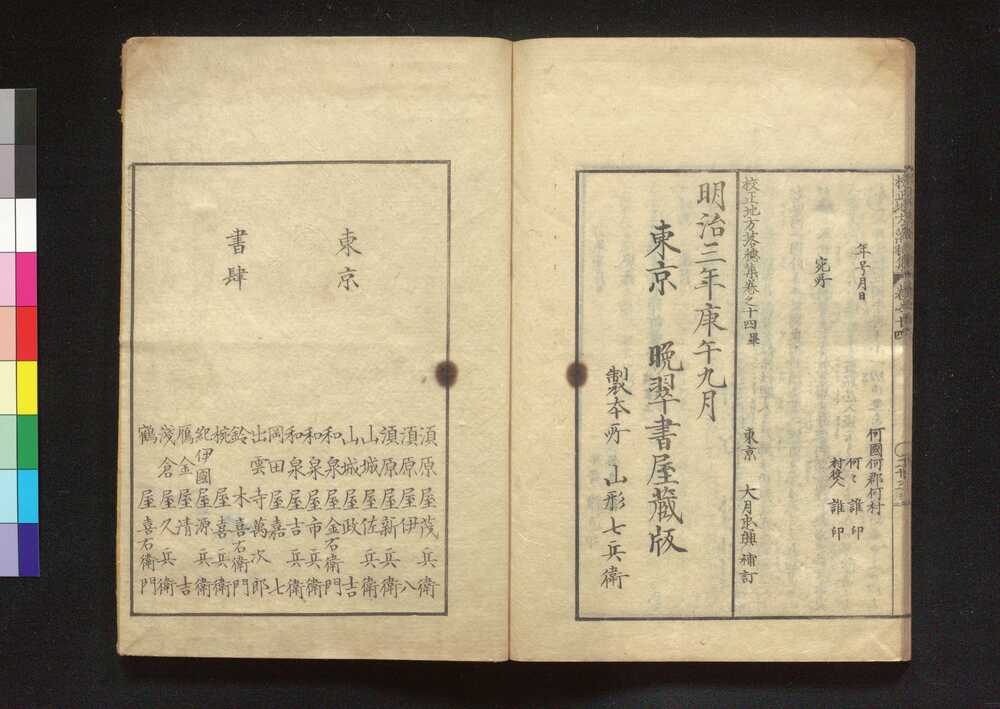 何國何郡何村
年号月日
何〻 誰印
村役人 誰印
宛所
校正地方落穂集巻之十四畢
東京 大月忠興補訂
明治三年庚午九月
東京 晩翠書屋藏版
製本所 山形七兵衛
東京
書肆
須原屋茂兵衛
須原屋伊八
須原屋新兵衛
山城屋佐兵衛
山城屋政吉
和泉屋金右衛門
和泉屋市兵衛
和泉屋吉兵衛
岡田屋嘉七
出雲寺萬次郎
鈴木喜右衛門
椀屋喜兵衛
紀伊國屋源兵衛
雁金屋清吉
淺倉屋久兵衛
鶴屋喜右衛門